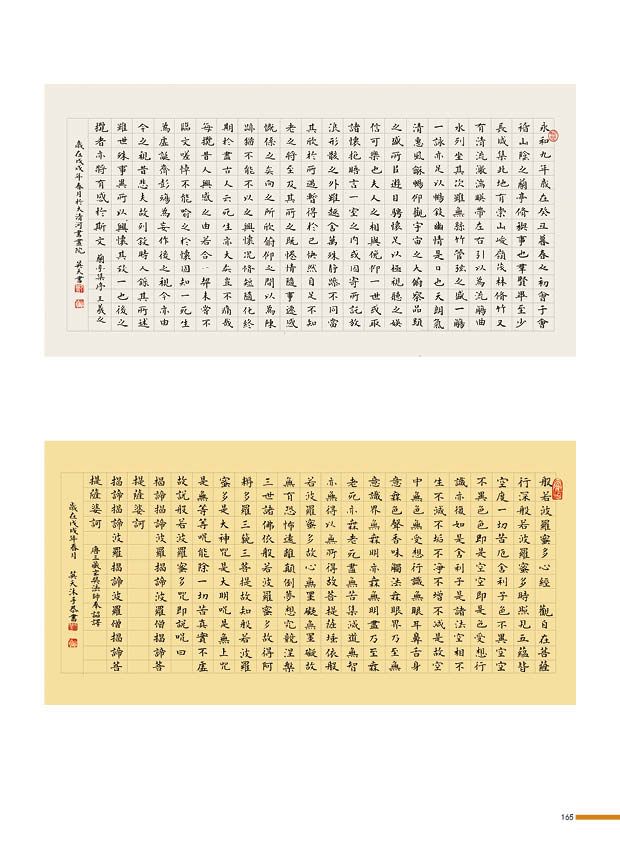 永和九年歲在癸丑暮春之初會于會
稽山陰之蘭亭脩禊事也羣賢畢至少
長咸集此地有崇山峻嶺茂林脩竹又
有清流激湍暎帶左右引以為流觴曲
水列坐其次雖無絲竹管弦之盛一觴
一詠亦足以暢敘幽情是日也天朗氣
清惠風龢暢仰觀宇宙之大俯察品類
之盛所以遊目騁懷足以極視聽之娛
信可樂也夫人之相與俛仰一世或取
諸懷抱晤言一室之內或因寄所託放
浪形骸之外雖趣舍萬殊靜躁不同當
其欣於所遇暫得於己快然自足不知
老之將至及其所之既惓情隨事遷感
慨係之矣向之所欣俛仰之閒以為陳
跡猶不能不以之興懷況脩短隨化終
期於盡古人云死生亦大矣豈不痛哉
每攬昔人興感之由若合一契未嘗不
臨文嗟悼不能喻之於懷固知一死生
為虛誕齊彭殤為妄作後之視今亦由
今之視昔悲夫故列敘時人錄其所述
雖世殊事異所以興懷其致一也後之
攬者亦將有感於斯文 蘭亭集序 王羲之
歲在戊戌年春月於大清河書畫院 英天書
般若波羅蜜多心經 觀自在菩薩
行深般若波羅蜜多時照見五蘊皆
空度一切苦厄舍利子色不異空空
不異色色即是空空即是色受想行
識亦復如是舍利子是諸法空相不
生不滅不垢不淨不增不減是故空
中無色無受想行識無眼耳鼻舌身
意無色聲香味觸法無眼界乃至無
意識界無無明亦無無明盡乃至無
老死亦無老死盡無苦集滅道無智
亦無得以無所得故菩提薩埵依般
若波羅蜜多故心無罣礙無罣礙故
無有恐怖遠離顛倒夢想究竟涅槃
三世諸佛依般若波羅蜜多故得阿
耨多羅三藐三菩提故知般若波羅
蜜多是大神咒是大明咒是無上咒
是無等等咒能除一切苦真實不虛
故說般若波羅蜜多咒即說咒曰
揭諦揭諦波羅揭諦波羅僧揭諦菩
提薩婆訶
揭諦揭諦波羅揭諦波羅僧揭諦菩
提薩婆訶
唐三藏玄奘法師奉詔譯
歲在戊戌年春月 英天沐手恭書
165